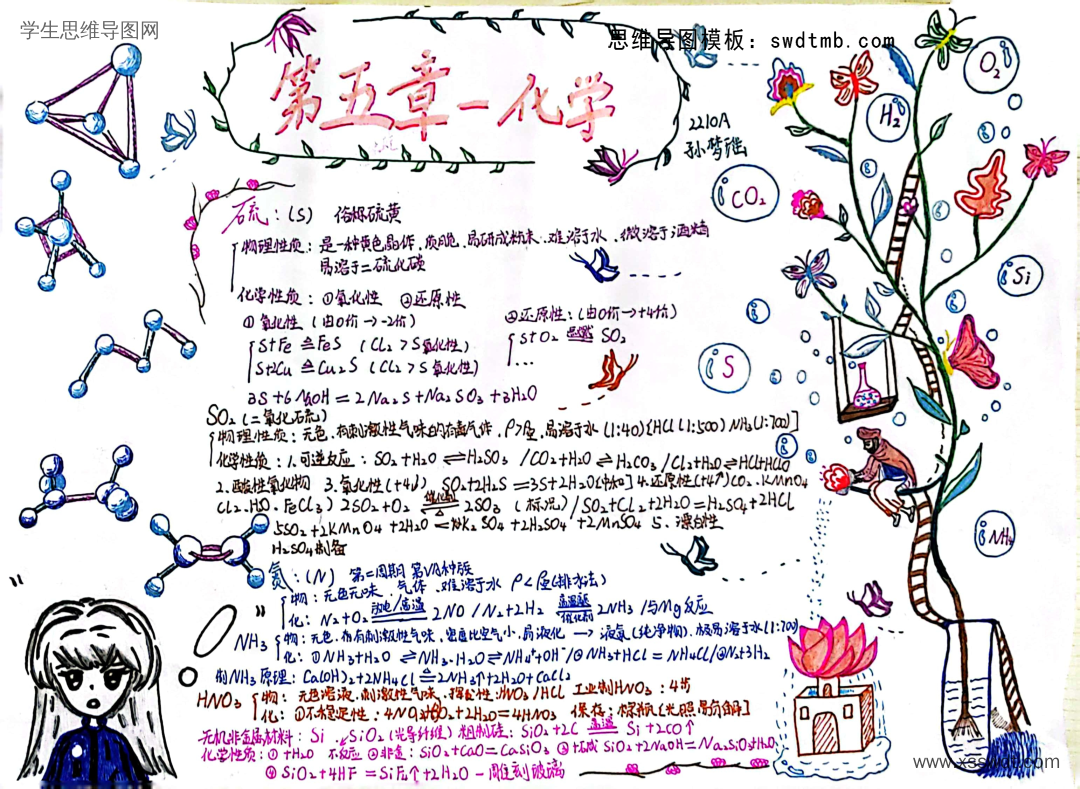 学生思维导图网
思维导图模板：swdtmb.com
第五章一化学
2210A
孙梦瑶
O₂
H₂
CO₂
Si
S
NH₃
硫：(S) 俗称硫黄
物理性质：是一种黄色晶体，质脆，易研成粉末，难溶于水，微溶于酒精
易溶于二硫化碳
化学性质：①氧化性 ②还原性
①氧化性（由0价→-2价）
②还原性：（由0价→+4价）
S+Fe ≙ FeS （Cl₂>S氧化性）
S+O₂ 点燃 SO₂
S+2Cu ≙ Cu₂S （Cl₂>S氧化性）
...
3S+6NaOH=2Na₂S+Na₂SO₃+3H₂O
SO₂（二氧化硫）
物理性质：无色，有刺激性气味的有毒气体，ρ>ρ空，易溶于水(1:40){HCl(1:500) NH₃(1:700)]
化学性质：1.可逆反应：SO₂+H₂O⇌H₂SO₃/CO₂+H₂O⇌H₂CO₃/Cl₂+H₂O⇌HCl+HClO
2.酸性氧化物 3.氧化性(+4↓) SO₂+2H₂S=3S+2H₂O[中和] 4.还原性(+4↑)(O₂、KMnO₄
Cl₂、H₂O、FeCl₃) 2SO₂+O₂ 催化剂 △ 2SO₃ (标况)/SO₂+Cl₂+2H₂O=H₂SO₄+2HCl
5SO₂+2KMnO₄+2H₂O=K₂SO₄+2H₂SO₄+2MnSO₄ 5、漂白性
H₂SO₄制备
氮：(N) 第二周期第VA种族
物：无色无味、气体、难溶于水 ρ<ρ空(排水法)
化：N₂+O₂ 放电/高温 2NO/N₂+2H₂ 高温高压 催化剂 2NH₃/与Mg反应
NH₃ 物：无色，有刺激性气味，密度比空气小，易液化→液氨(纯净物)，极易溶于水(1:700)
化：①NH₃+H₂O⇌NH₃·H₂O⇌NH₄⁺+OH⁻/②NH₃+HCl=NH₄Cl/③N₂+3H₂
制NH₃原理：Ca(OH)₂+2NH₄Cl≙2NH₃↑+2H₂O+CaCl₂
HNO₃ 物：无色溶液，刺激性气味，挥发性：HNO₃/HCl 工业制HNO₃：4步
化：①不稳定性：4NO₂+O₂+2H₂O=4HNO₃ 保存：棕瓶[光照易分解]
无机非金属材料：Si、SiO₂(光导纤维) 粗制硅：SiO₂+2C 高温 Si+2CO↑
化学性质：①+H₂O 不反应 ②非金：SiO₂+CaO=CaSiO₃ ③+碱 SiO₂+2NaOH=Na₂SiO₃+H₂O
④SiO₂+4HF=SiF₄↑+2H₂O—雕刻玻璃